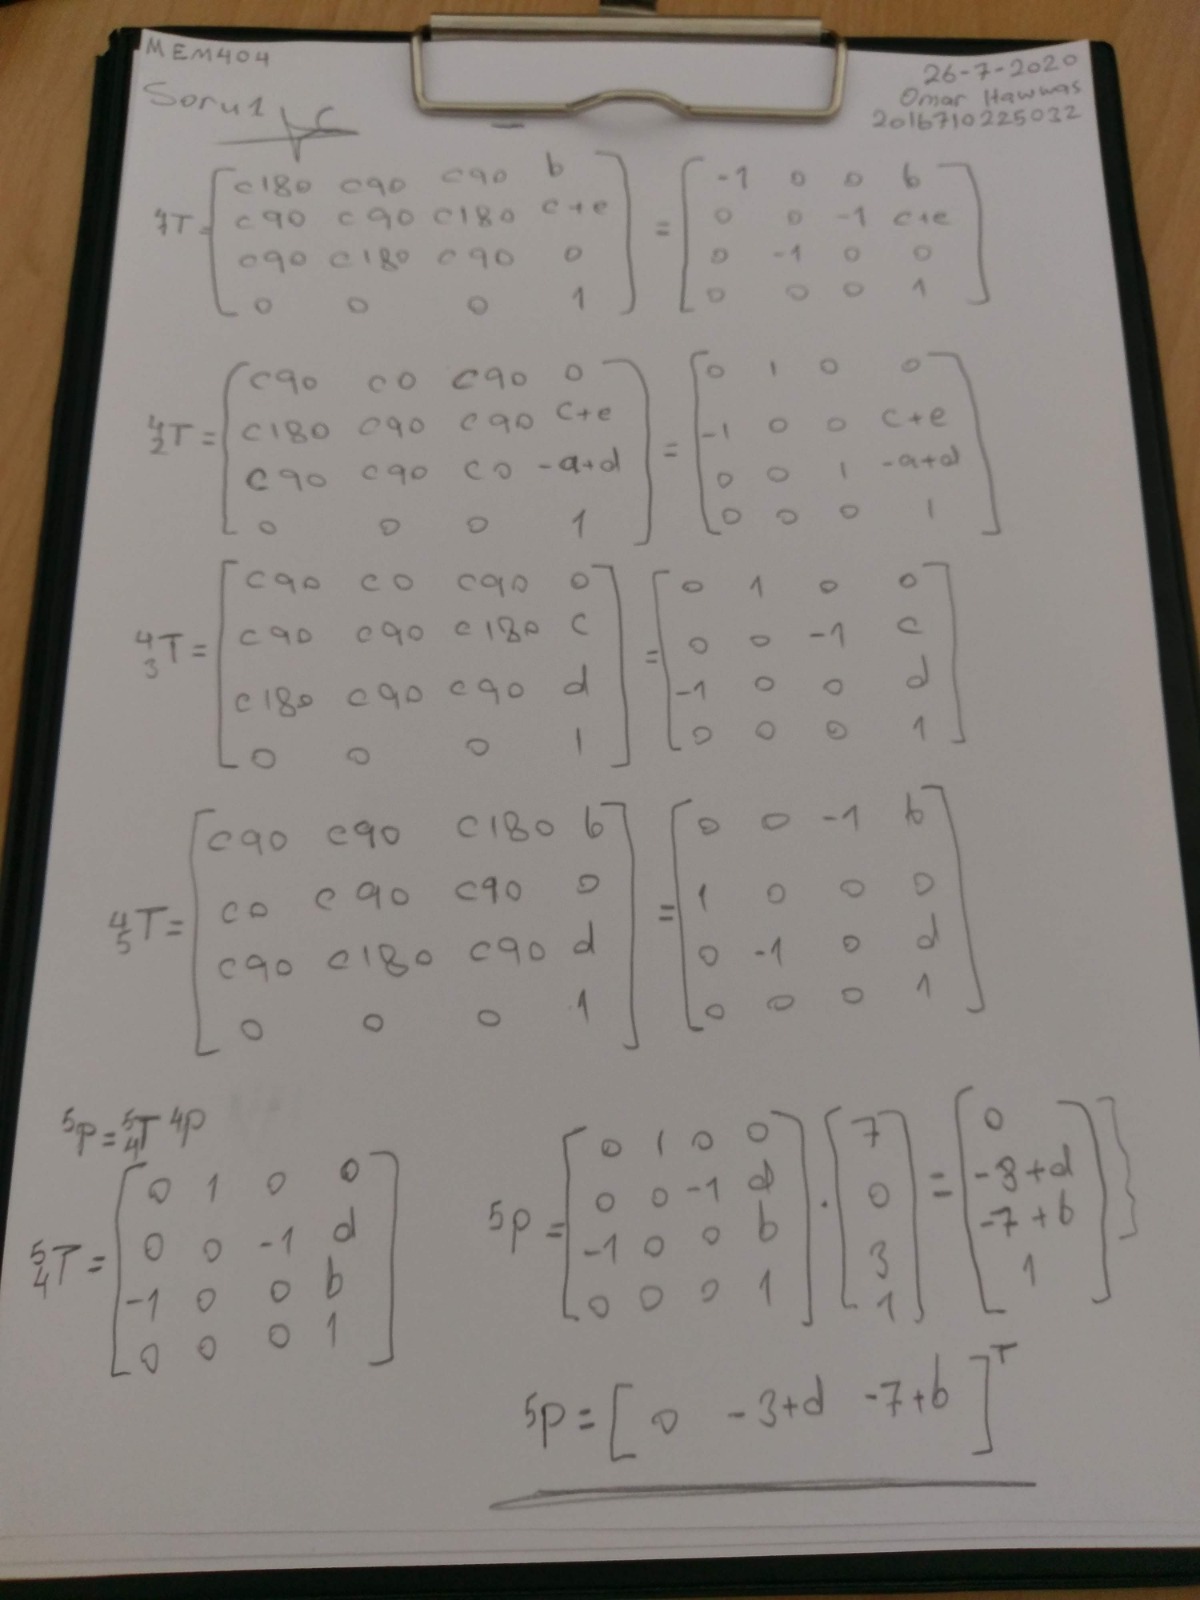 MEM404
26-7-2020
Soru1
Omar Hawwas
2016710225032
c180 c90 c90 b
c90 c90 c180 c+e
c90 c180 c90 0
0 0 0 1
=
-1 0 0 b
0 0 -1 c+e
0 -1 0 0
0 0 0 1
4 2 T =
c90 c0 c90 0
c180 c90 c90 c+e
c90 c90 c0 -a+d
0 0 0 1
=
0 1 0 0
-1 0 0 c+e
0 0 1 -a+d
0 0 0 1
4 3 T =
c90 c0 c90 0
c90 c90 c180 c
c180 c90 c90 d
0 0 0 1
=
0 1 0 0
0 0 -1 c
-1 0 0 d
0 0 0 1
4 5 T =
c90 c90 c180 b
c0 c90 c90 0
c90 c180 c90 d
0 0 0 1
=
0 0 -1 b
1 0 0 0
0 -1 0 d
0 0 0 1
5p = 5 4 T 4p
5 4 T =
0 1 0 0
0 0 -1 d
-1 0 0 b
0 0 0 1
5p =
0 1 0 0
0 0 -1 d
-1 0 0 b
0 0 0 1
.
7
0
3
1
=
0
-3+d
-7+b
1
5p = [ 0 -3+d -7+b ]T